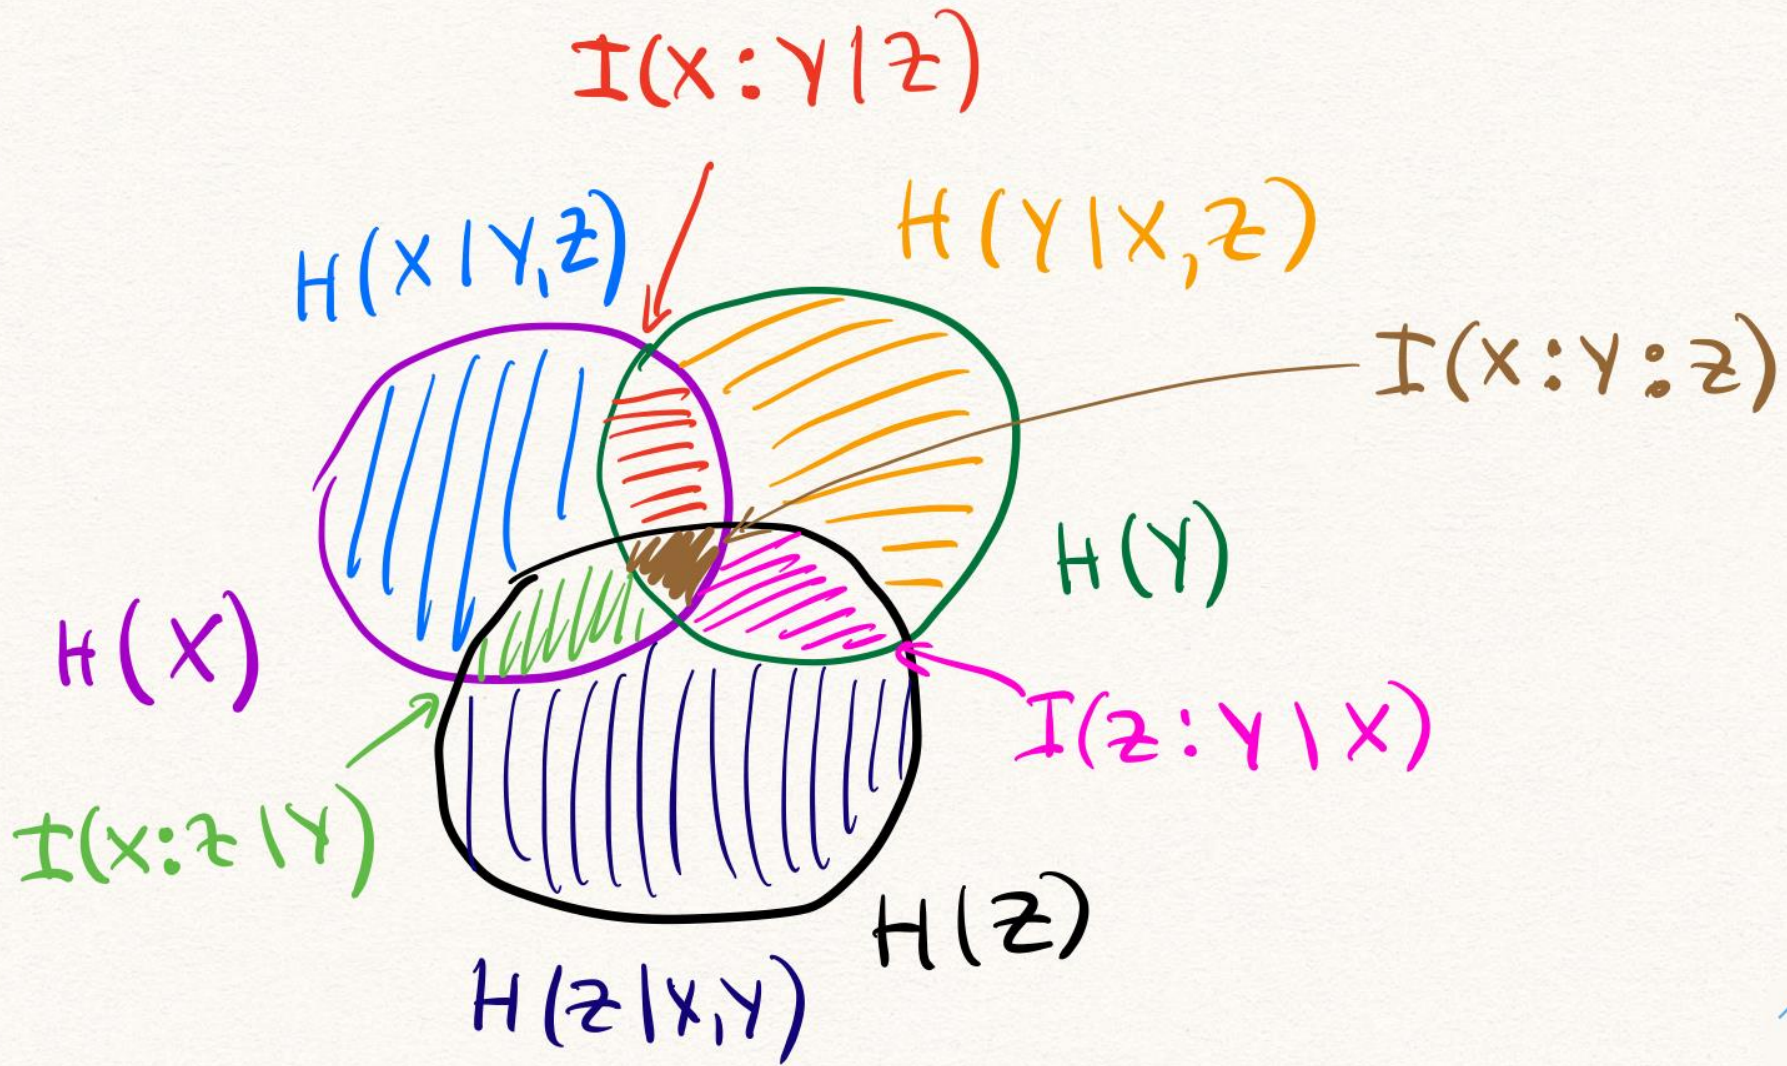 I(X:Y|Z)
H(X|Y,Z)
H(Y|X,Z)
I(X:Y:Z)
H(Y)
H(X)
I(Z:Y|X)
I(X:Z|Y)
H(Z)
H(Z|X,Y)